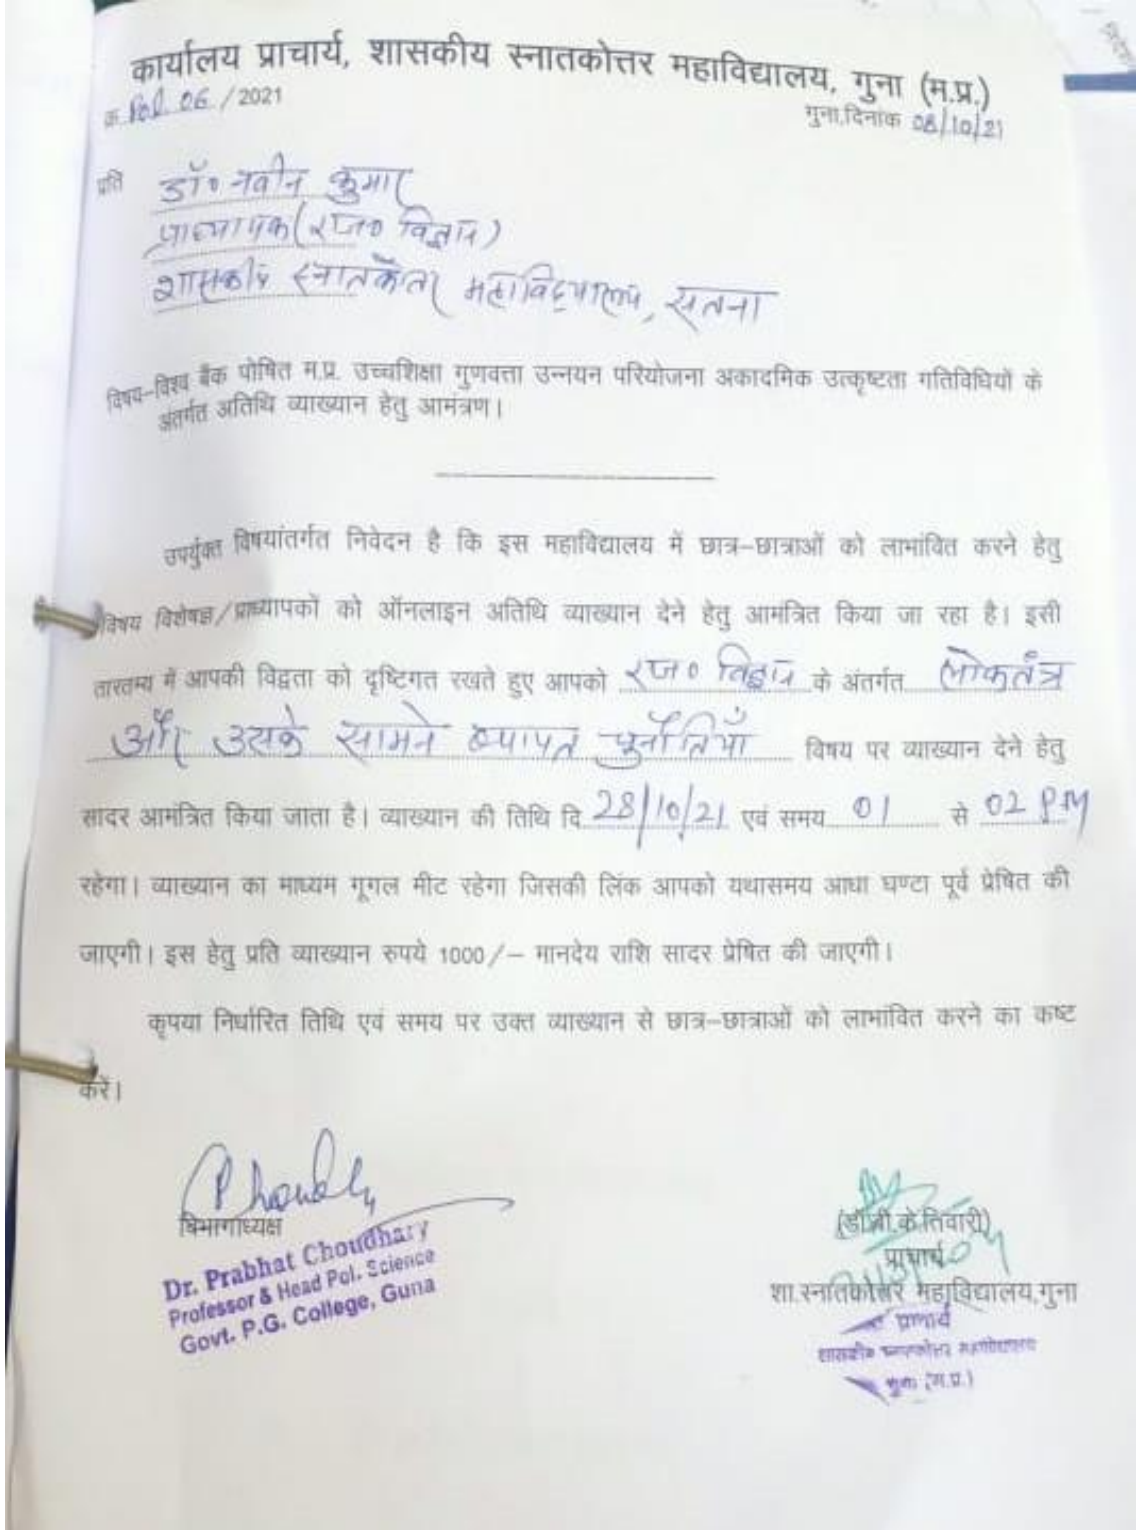 कार्यालय प्राचार्य, शासकीय स्नातकोत्तर महाविद्यालय, गुना (म.प्र.)
क Pol. 06 / 2021
गुना,दिनांक 08/10/21
प्रति डॉ० नवीन कुमार
प्राध्यापक (राज० विज्ञान)
शासकीय स्नातकोत्तर महाविद्यालय, सतना
विषय-विश्व बैंक पोषित म.प्र. उच्चशिक्षा गुणवत्ता उन्नयन परियोजना अकादमिक उत्कृष्टता गतिविधियों के
अंतर्गत अतिथि व्याख्यान हेतु आमंत्रण।
उपर्युक्त विषयांतर्गत निवेदन है कि इस महाविद्यालय में छात्र-छात्राओं को लाभांवित करने हेतु
विषय विशेषज्ञ/प्राध्यापकों को ऑनलाइन अतिथि व्याख्यान देने हेतु आमंत्रित किया जा रहा है। इसी
तारतम्य में आपकी विद्वता को दृष्टिगत रखते हुए आपको राज० विज्ञान के अंतर्गत लोकतंत्र
और उसके सामने व्यापत चुनौतियाँ विषय पर व्याख्यान देने हेतु
सादर आमंत्रित किया जाता है। व्याख्यान की तिथि दि 28/10/21 एवं समय 01 से 02 PM
रहेगा। व्याख्यान का माध्यम गूगल मीट रहेगा जिसकी लिंक आपको यथासमय आधा घण्टा पूर्व प्रेषित की
जाएगी। इस हेतु प्रति व्याख्यान रुपये 1000/- मानदेय राशि सादर प्रेषित की जाएगी।
कृपया निर्धारित तिथि एवं समय पर उक्त व्याख्यान से छात्र-छात्राओं को लाभांवित करने का कष्ट
करें।
विभागाध्यक्ष
Dr. Prabhat Choudhary
Professor & Head Pol. Science
Govt. P.G. College, Guna
(डॉ.बी.के.तिवारी)
प्राचार्य
शा.स्नातकोत्तर महाविद्यालय,गुना
प्राचार्य
शासकीय स्नातकोत्तर महाविद्यालय
गुना (म.प्र.)